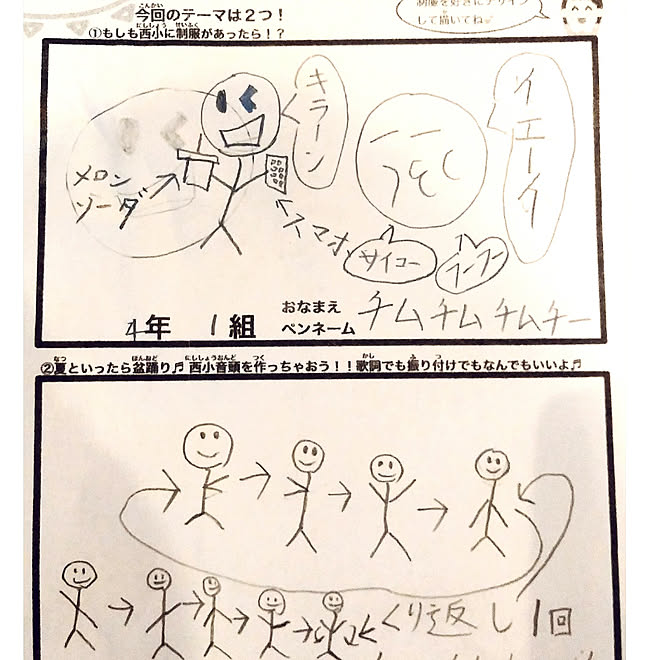 今回のテーマは2つ!
①もしも西小に制服があったら!?
制服を好きにデザイン
して描いてね
キラーン
イエーイ
メロン
ソーダ
スマホ
サイコー
4年 1組
おなまえ
ペンネーム
チムチムチムチー
②夏といったら盆踊り♬ 西小音頭を作っちゃおう!!歌詞でも振り付けでもなんでもいいよ♬
くり返し1回